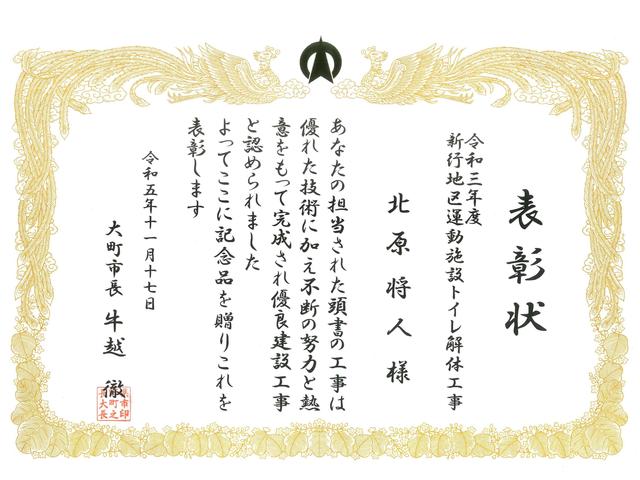 表彰状
令和三年度
新行地区運動施設トイレ解体工事
北原将人様
あなたの担当された頭書の工事は
優れた技術に加え不断の努力と熱
意をもって完成され優良建設工事
と認められました
よってここに記念品を贈りこれを
表彰します
令和五年十一月十七日
大町市長 牛越 徹